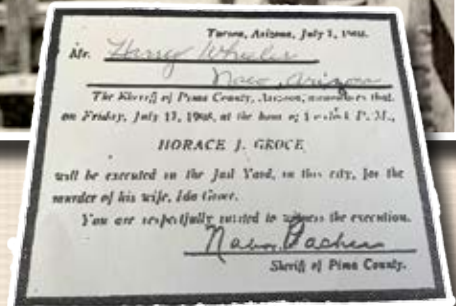 Tucson, Arizona, July 1, 1908.
Mr. Harry Wheeler
Naco, Arizona
The Sheriff of Pima County, Arizona, announces that
on Friday, July 17, 1908, at the hour of 1 o'clock P. M.,
HORACE J. GROCE
will be executed in the Jail Yard, in this city, for the
murder of his wife, Ida Groce.
You are respectfully invited to witness the execution.
Nabor Pacheco
Sheriff of Pima County.